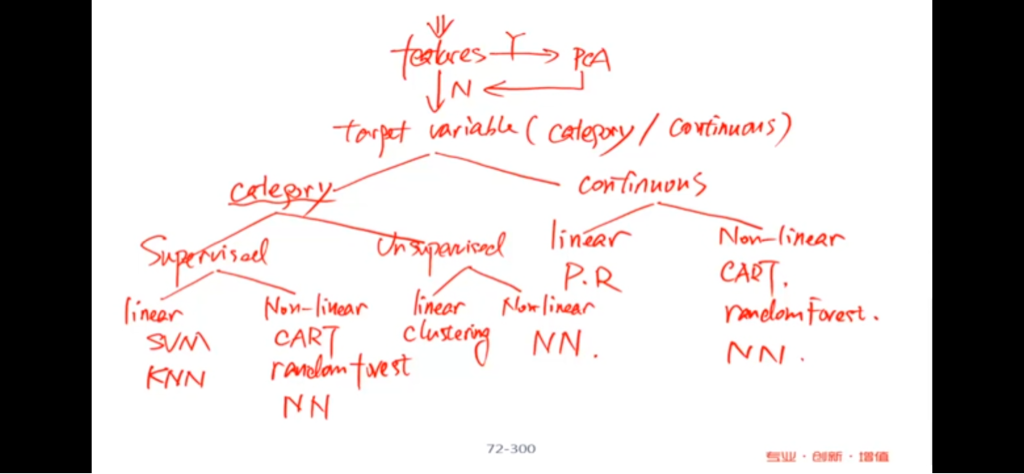 features Y PCA
N
target variable ( category / continuous )
category continuous
Supervised Unsupervised linear Non-linear
P.R CART.
linear Non-linear linear Non-linear random Forest.
SVM CART clustering NN. NN.
KNN random forest
NN
72-300
专业·创新·增值